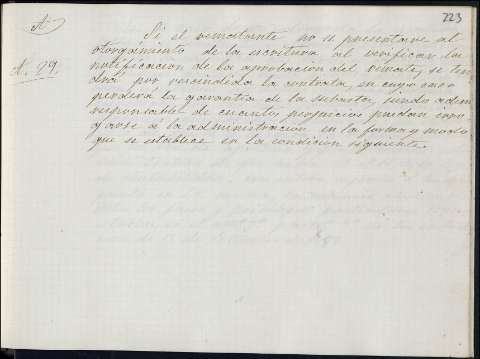 223
A
Si el rematante no se presentare al
otorgamiento de la escritura al verificar la
A. 29. notificacion de la aprobacion del remate, se ten
drá por rescindida la contrata, en cuyo caso
perderá la garantia de la subasta, siendo adem
responsable de cuantos perjuicios puedan irro
garse á la administracion en la forma y modo
que se establece en la condicion siguiente.